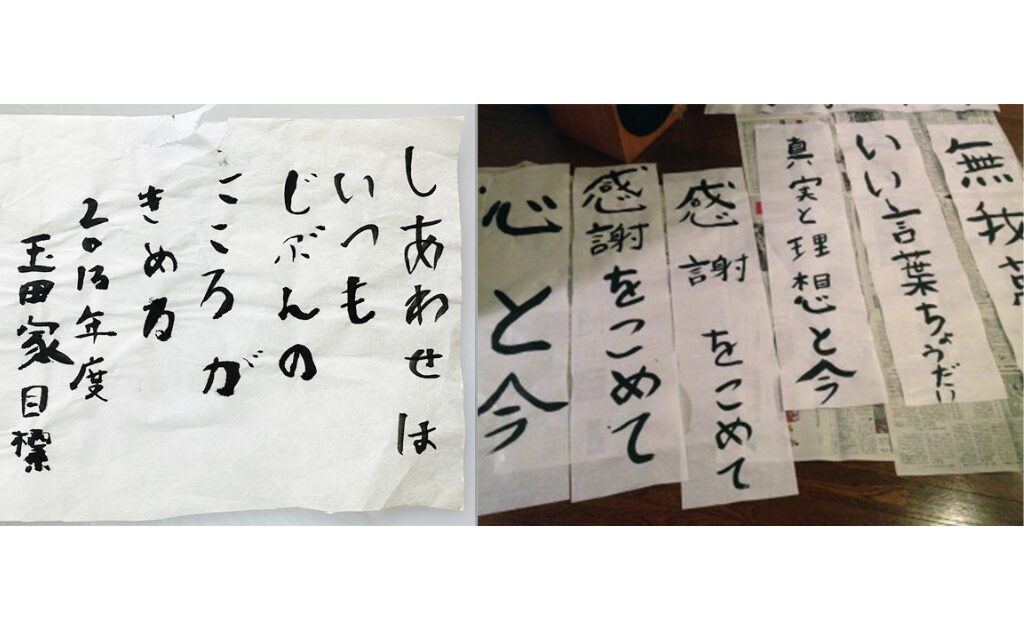 しあわせは
いつも
じぶんの
こころが
きめる
2013年度
玉田家目標
無我
いい言葉ちょうだい
真実と理想と今
感謝をこめて
感謝をこめて
心と今